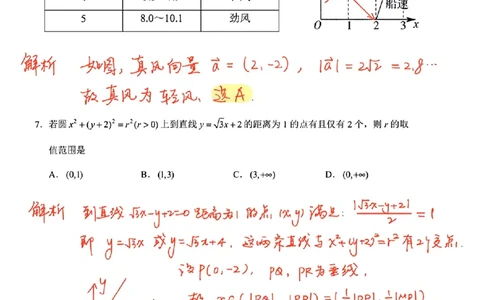 5 8.0～10.1 劲风
船速
O 1 2 3 x
解析 如图，真风向量 a⃗ = (2,-2)， |a⃗| = 2√2 = 2.8⋯
故真风为轻风，选A.
7．若圆x²+(y+2)²=r²(r>0)上到直线y=√3x+2的距离为1的点有且仅有2个，则r的取
值范围是
A．(0,1) B．(1,3) C．(3,+∞) D．(0,+∞)
解析 到直线 √3x-y+2=0 距离为1的点(x,y)满足：|√3x-y+2|/2 = 1
即 y=√3x 或 y=√3x+4．这两条直线与x²+(y+2)²=r²有2个交点.
设P(0,-2)， PQ，PR为垂线，
y